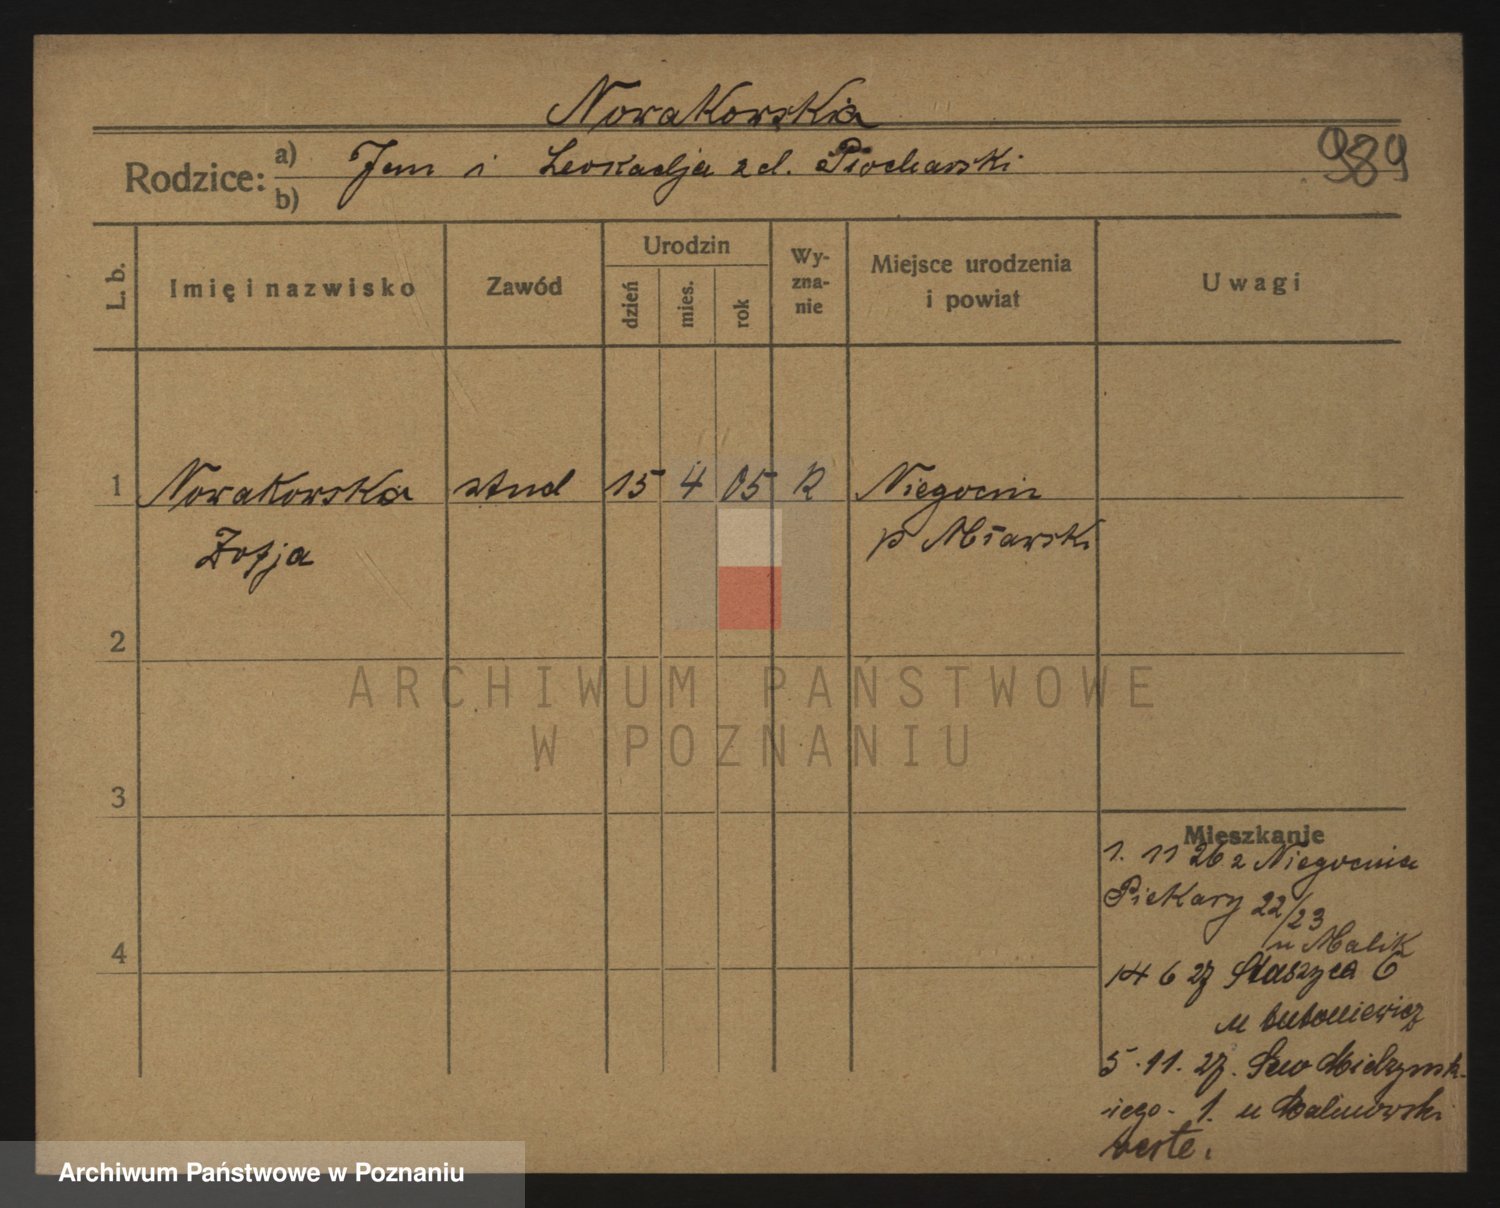 Nowakowska
989
Rodzice: a) Jan i Leokadja z d. Piocharski
b)
L. b. Imię i nazwisko Zawód Urodzin dzień mies. rok Wyznanie Miejsce urodzenia i powiat Uwagi
1 Nowakowska stud 15 4 05 R Niegocin
Zofja p Mławski
2
3
4
Mieszkanie
1. 11 26 z Niegocina
Piekary 22/23
u Malik
14 6 27 Staszyca 6
u Antoniewicz
5. 11. 27. Sew Mielżyńsk-
iego. 1. u Malinowski
verte.
ARCHIWUM PAŃSTWOWE
W POZNANIU
Archiwum Państwowe w Poznaniu